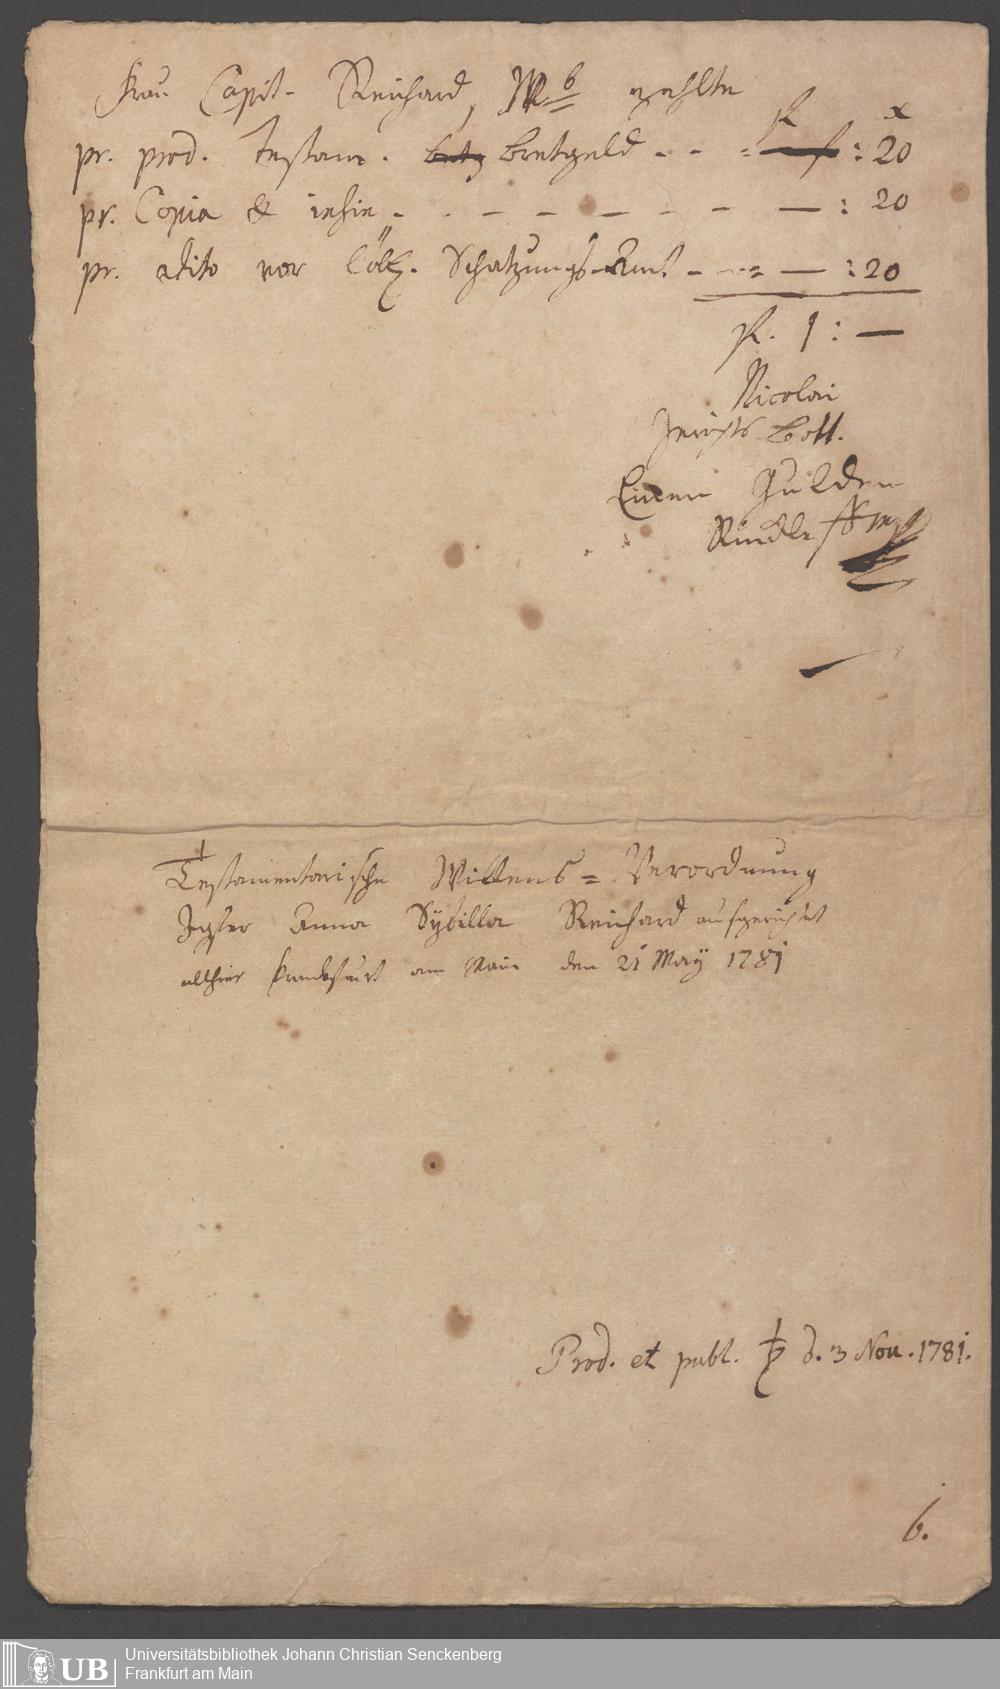 Frau Capit. Reichard, Wb zahlte
fl x
pr. prod. Testam. Bretgeld - - = — : 20
pr. Copia & - - - - - - - — : 20
pr. dito vor löbl. Schatzungs-Amt - - = — : 20
fl. 1 : —
Nicolai
Gerichts Bott.
Einen Gulden
Testamentarische Willens = Verordnung
Jgfer Anna Sybilla Reichard aufgerichtet
allhier Franckfurt am Main den 21 May 1781
Prod. et publ. d. 3 Nov. 1781.
6.
UB
Universitätsbibliothek Johann Christian Senckenberg
Frankfurt am Main